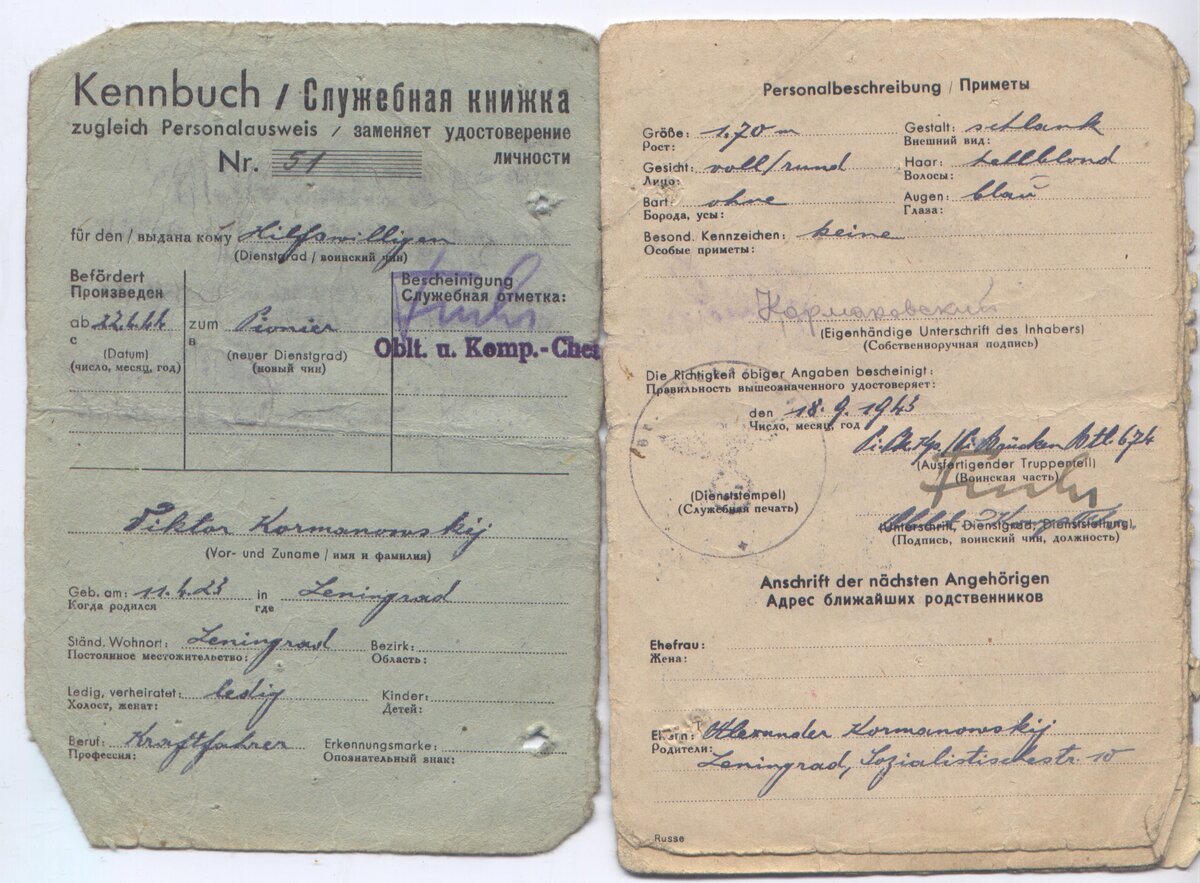 Kennbuch / Служебная книжка
zugleich Personalausweis / заменяет удостоверение
личности
Nr. 51
für den / выдана кому Hilfswilligen
(Dienstgrad / воинский чин)
Befördert
Произведен
Bescheinigung
Служебная отметка:
ab 22.4.44 zum Pionier
с в
(Datum) (neuer Dienstgrad)
(число, месяц, год) (новый чин)
Oblt. u. Komp.-Chef
Viktor Kormanowskij
(Vor- und Zuname / имя и фамилия)
Geb. am: 11.4.23 in Leningrad
Когда родился где
Ständ. Wohnort: Leningrad Bezirk:
Постоянное местожительство: Область:
Ledig, verheiratet: ledig Kinder:
Холост, женат: Детей:
Beruf: Kraftfahrer Erkennungsmarke:
Профессия: Опознательный знак:
Personalbeschreibung / Приметы
Größe: 1,70 m Gestalt: schlank
Рост: Внешний вид:
Gesicht: voll/rund Haar: hellblond
Лицо: Волосы:
Bart: ohne Augen: blau
Борода, усы: Глаза:
Besond. Kennzeichen: keine
Особые приметы:
Кормановский
(Eigenhändige Unterschrift des Inhabers)
(Собственноручная подпись)
Die Richtigkeit obiger Angaben bescheinigt:
Правильность вышеозначенного удостоверяет:
den 18.9.1943
Число, месяц, год
Brücken Btl. 674
(Ausfertigender Truppenteil)
(Воинская часть)
(Dienststempel)
(Служебная печать)
(Unterschrift, Dienstgrad, Dienststellung)
(Подпись, воинский чин, должность)
Anschrift der nächsten Angehörigen
Адрес ближайших родственников
Ehefrau:
Жена:
Eltern: Alexander Kormanowskij
Родители:
Leningrad, Sozialistischestr. 10
Russe